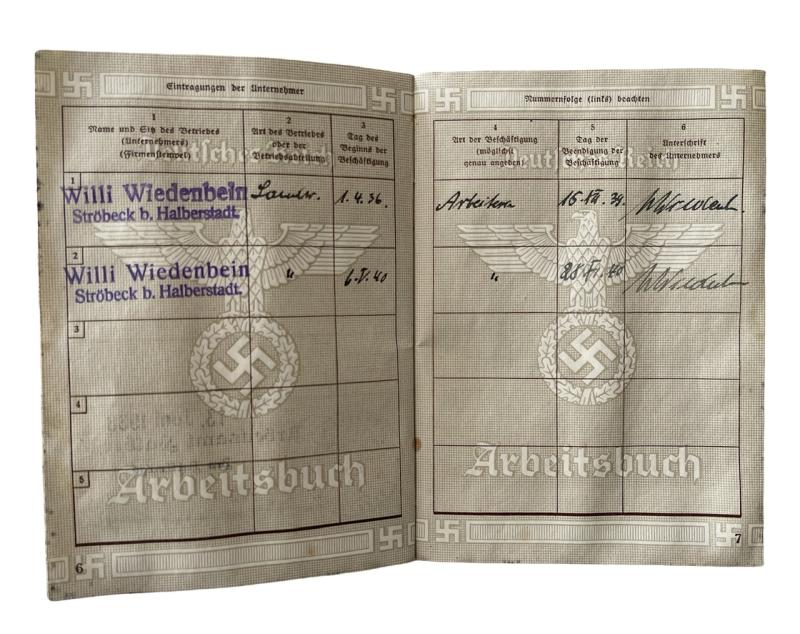 Eintragungen der Unternehmer
1
Name und Sitz des Betriebes
(Unternehmers)
(Firmenstempel)
2
Art des Betriebes
oder der
Betriebsabteilung
3
Tag des
Beginns der
Beschäftigung
Deutsches Reich
1
Willi Wiedenbein
Ströbeck b. Halberstadt.
Landw.
1.4.36.
2
Willi Wiedenbein
Ströbeck b. Halberstadt.
"
6.V.40
3
4
5
Arbeitsbuch
6
Nummernfolge (links) beachten
4
Art der Beschäftigung
(möglichst
genau angeben)
5
Tag der
Beendigung der
Beschäftigung
6
Unterschrift
des Unternehmers
Deutsches Reich
Arbeiterin
"
Arbeitsbuch
7